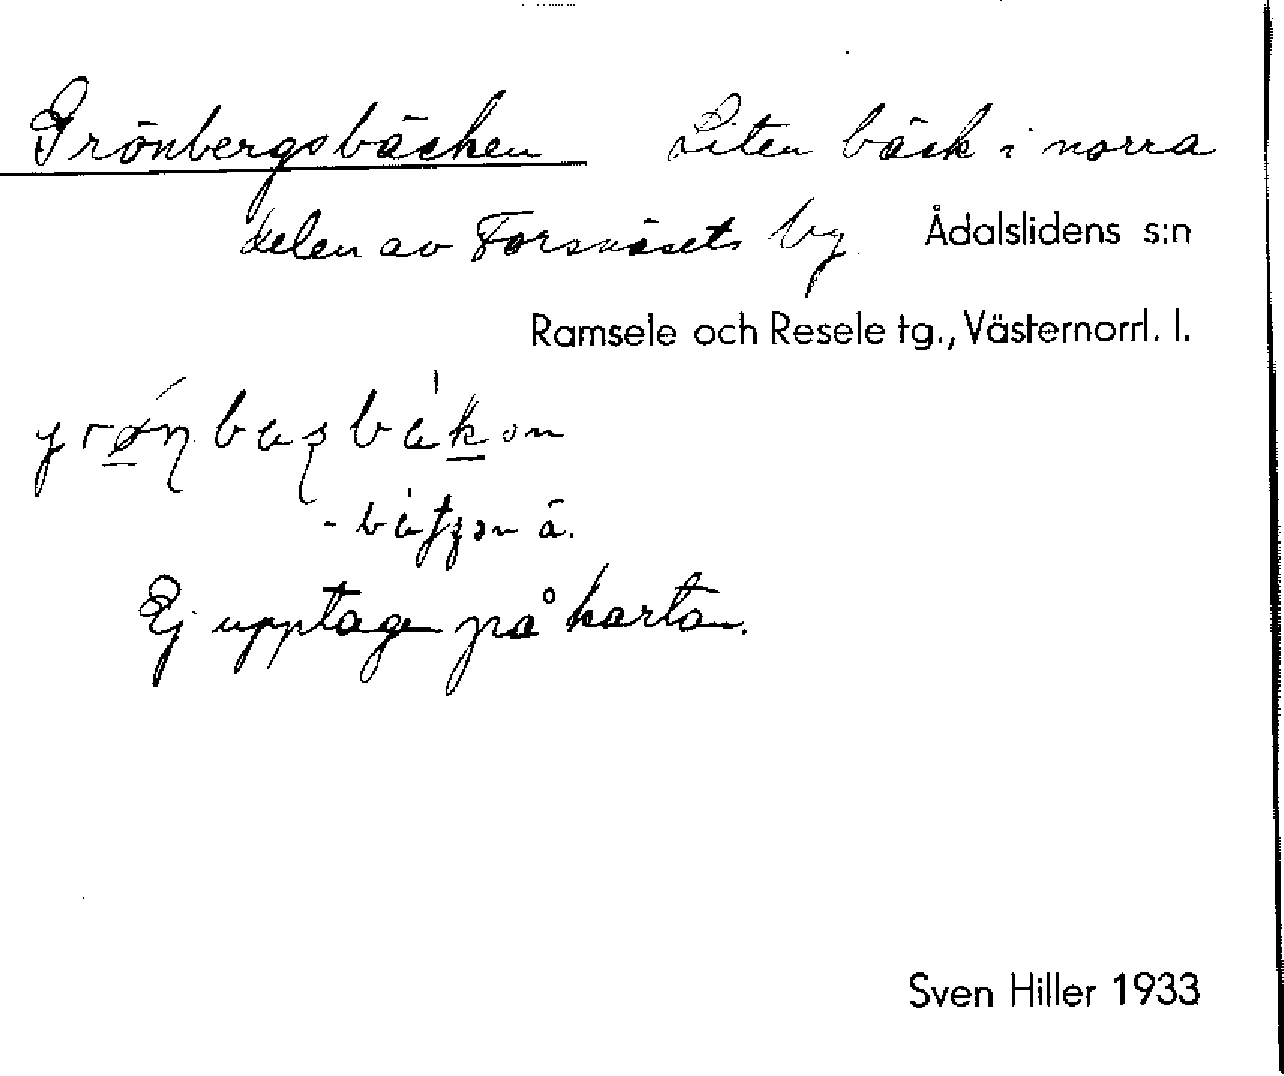 Grönbergsbäcken Liten bäck i norra
delen av Forsnäsets by Ådalslidens s:n
Ramsele och Resele tg., Västernorrl. l.
Ej upptagen på kartan.
Sven Hiller 1933